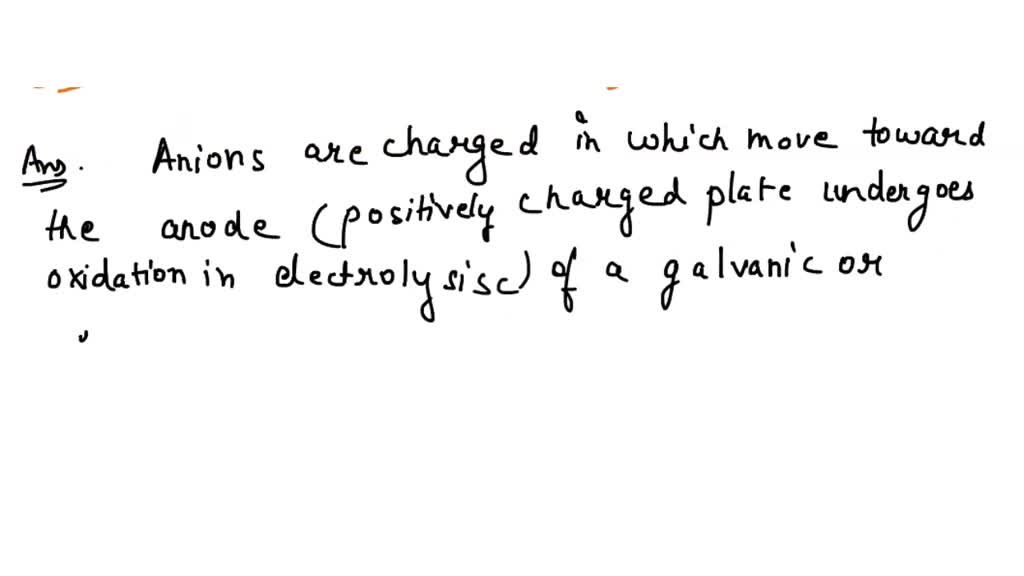 Ans. Anions are charged in which move toward
the anode (positively charged plate undergoes
oxidation in electrolysisc) of a galvanic or